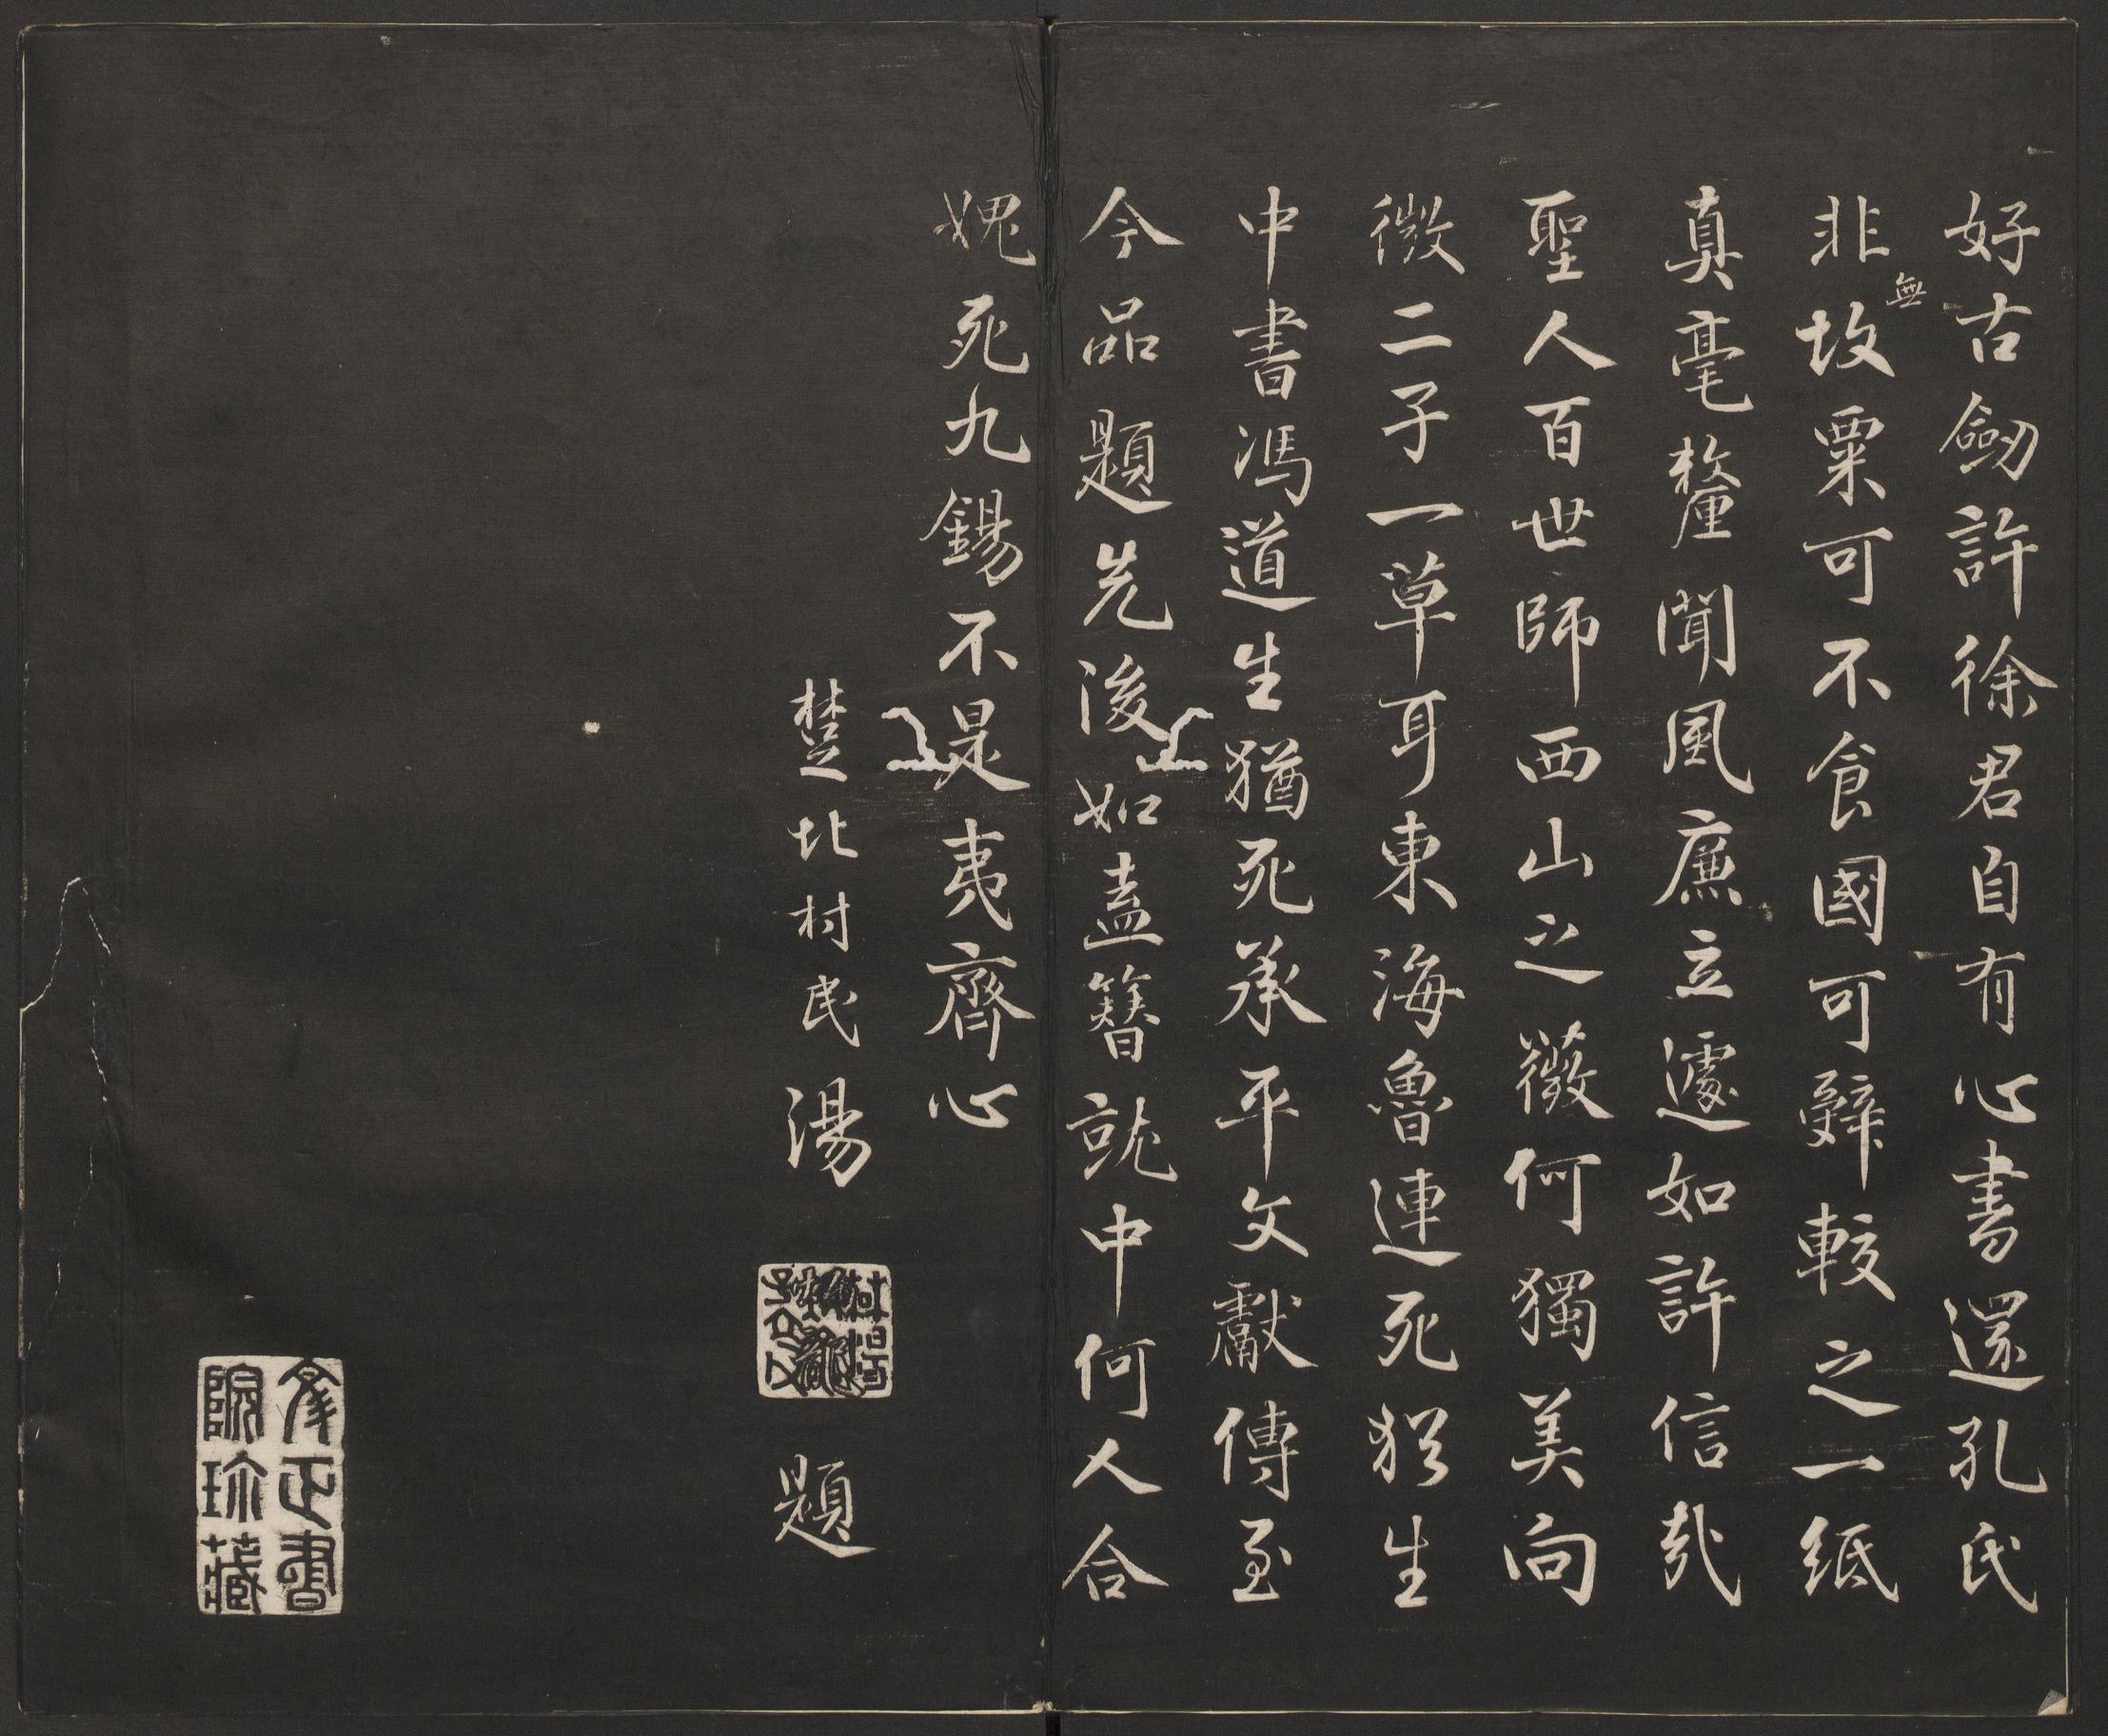 好古劒許徐君自有心書還孔氏
非無故粟可不食國可辭較之一紙
真毫釐聞風廉立遽如許信哉
聖人百世師西山之薇何獨美向
微二子一草耳東海魯連死猶生
中書馮道生猶死承平文獻傳至
今品題先後如盍簪就中何人合
媿死九錫不是夷齊心
楚北村民湯
題
院珎藏